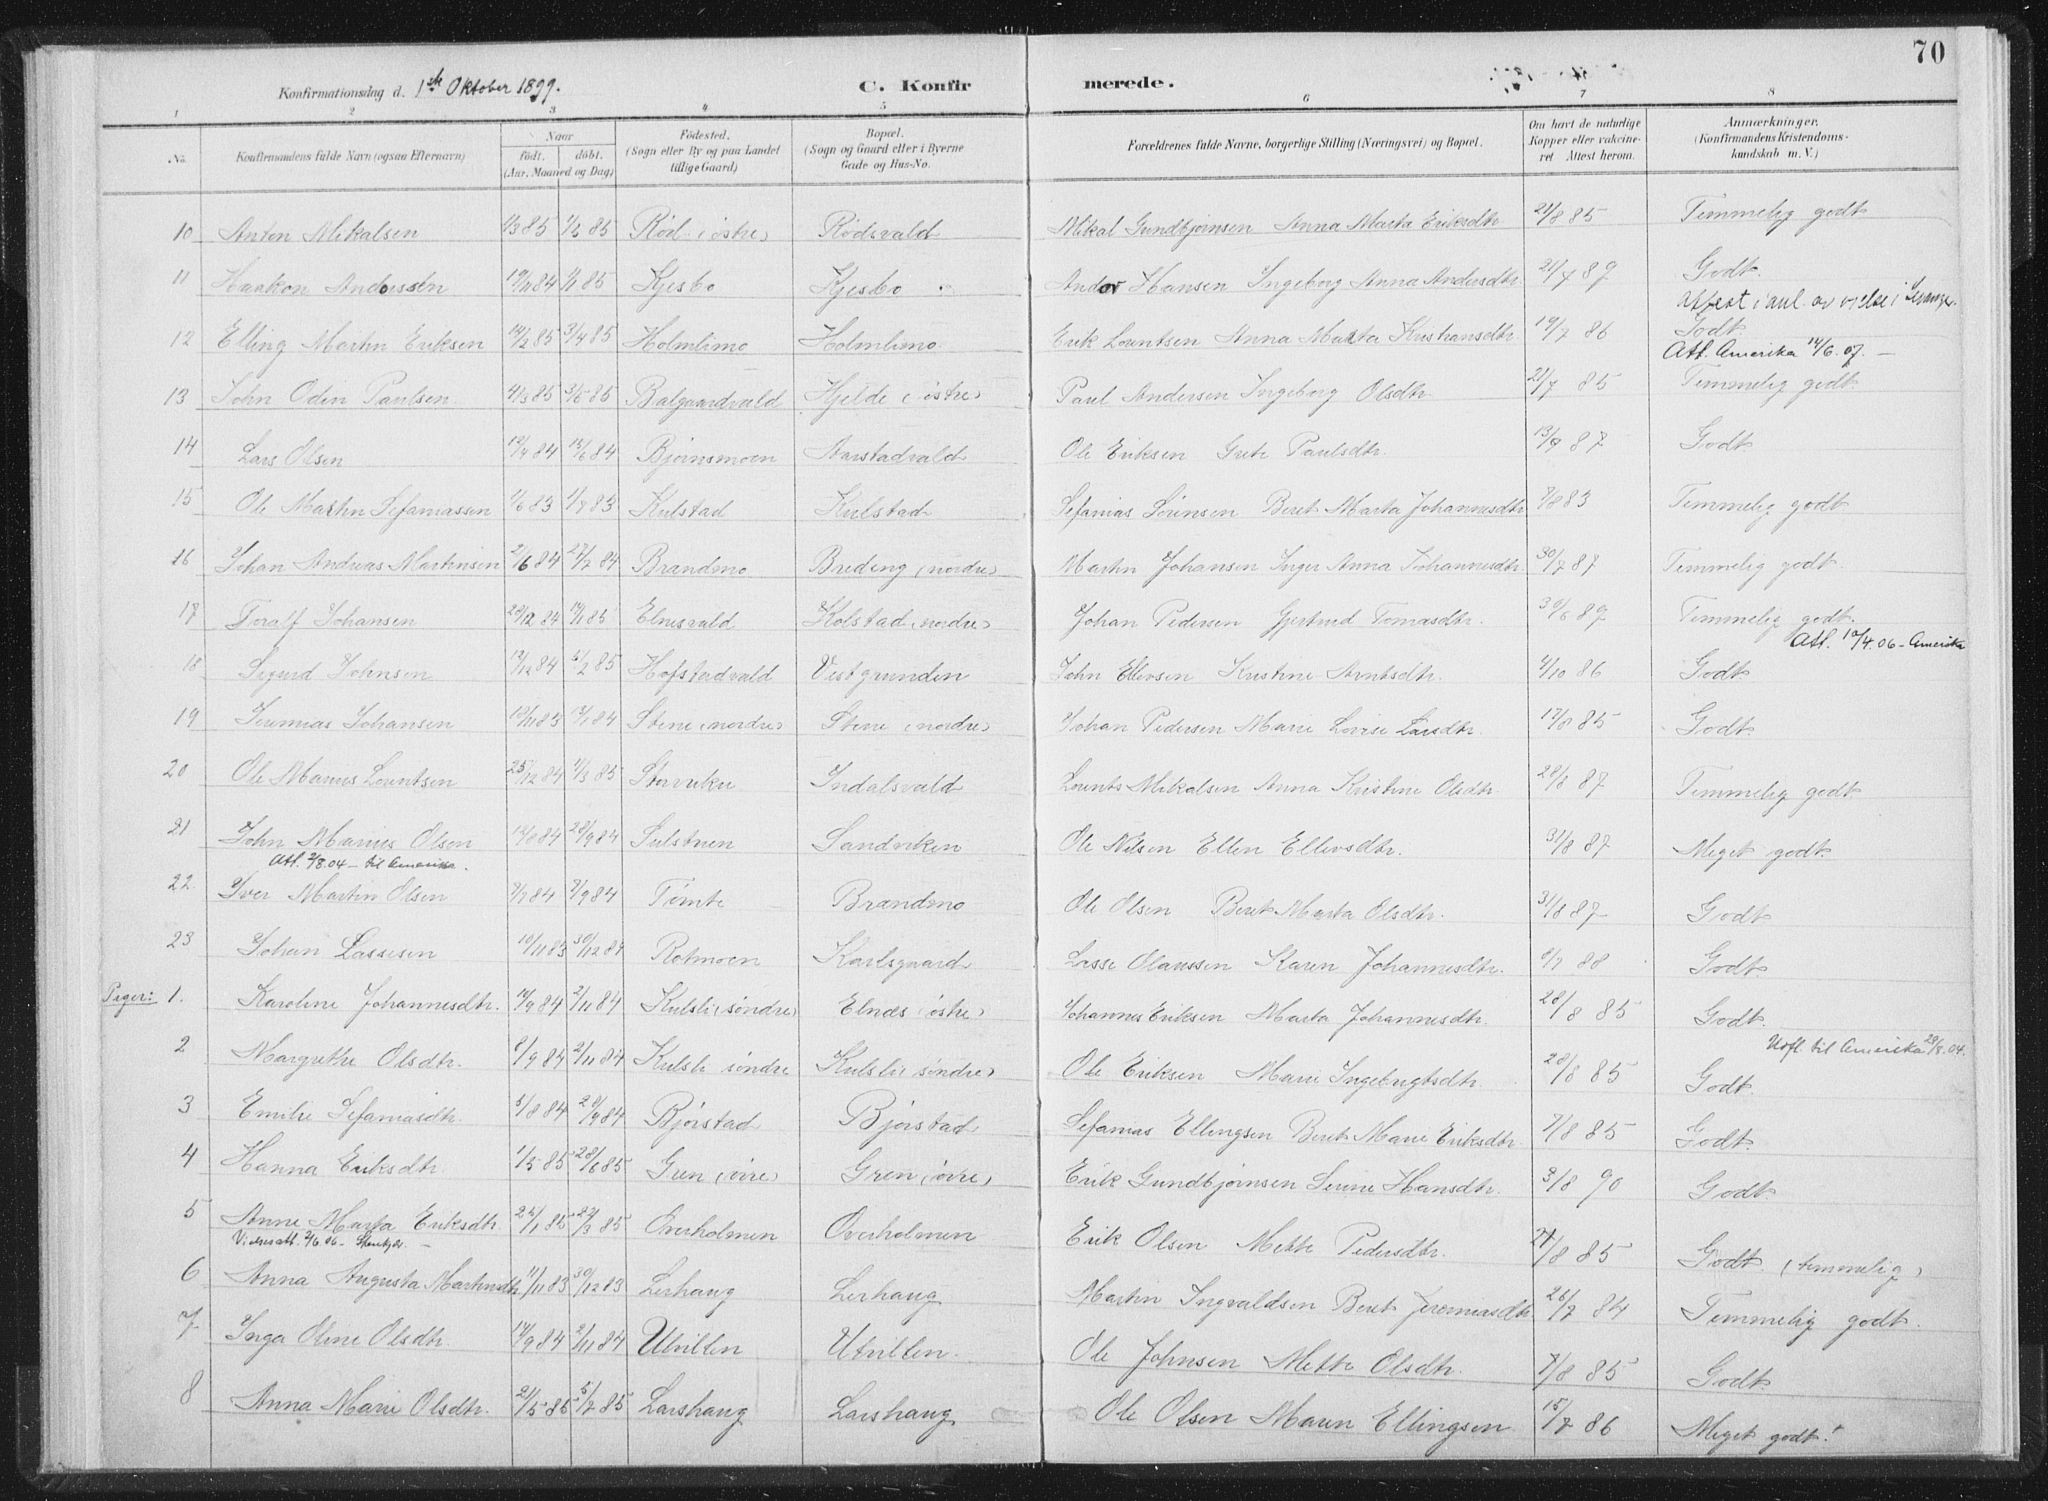 70
Konfirmationsdag d. 1ste Oktober 1899.
C. Konfirmerede.
1 2 3 4 5 6 7 8
No. Konfirmandens fulde Navn (ogsaa Efternavn) Naar født. døbt. (Aar, Maaned og Dag) Fødested. (Sogn eller By og paa Landet tillige Gaard) Bopæl. (Sogn og Gaard eller i Byerne Gade og Hus-No. Forældrenes fulde Navne, borgerlige Stilling (Næringsvei) og Bopæl. Om havt de naturlige Kopper eller vakcineret Attest herom. Anmærkninger. (Konfirmandens Kristendomskundskab m. V.)
10 Anton Mikalsen 1/3 85 1/5 85 Röd (østre) Rödsvald Mikal Gundbjørnsen Anna Marta Eriksdtr 21/8 85 Temmelig godt
11 Haakon Anderssen 19/11 84 1/1 85 Kjesbo Kjesbo Andor Hansen Ingeborg Anna Andersdtr 21/7 89 Godt.
12 Elling Martin Eriksen 14/2 85 3/4 85 Holmlimo Holmlimo Erik Lorntsen Anna Marta Kristiansdtr 19/7 86 Godt.
Att. Amerika 14/6.07. —
13 John Odin Paulsen 4/3 85 3/5 85 Balgaardvald Hjelde (østre) Paul Andersen Ingeborg Olsdtr. 21/7 85 Temmelig godt
14 Lars Olsen 12/4 84 13/6 84 Bjørnsmoen Aarstadvald Ole Eriksen Grete Paulsdtr. 13/9 87 Godt
15 Ole Martin Sefaniassen 1/6 83 1/7 83 Kulstad Kulstad Sefanias Sørensen Beret Marta Johannesdtr 7/8 83 Temmelig godt
16 Johan Andreas Martinsen 2/6 84 27/7 84 Brandmo Breding (nordre) Martin Johansen Inger Anna Johannesdtr 30/7 87 Temmelig godt.
17 Toralf Johansen 28/12 84 14/1 85 Elnesvald Kolstad (nordre) Johan Pedersen Gjertrud Tomasdtr. 30/6 89 Temmelig godt.
Att. 10/4.06 – Amerika
18 Sigurd Johnsen 17/12 84 5/2 85 Hofstadvald Vestgrunden John Ellevsen Kristine Arntsdtr. 4/10 86 Godt
19 Jeremias Johansen 10/11 83 13/1 84 Stene (nordre) Stene (nordre) Johan Pedersen Marie Lovise Larsdtr. 17/8 85 Godt
20 Ole Marius Lorntsen 25/12 84 1/3 85 Storviken Indalsvald Lornts Mikalsen Anna Kristine Olsdtr. 28/8 87 Temmelig godt
21 John Marius Olsen 12/8 84 28/9 84 Sulstuen Sandviken Ole Nilsen Ellen Ellevsdtr. 31/8 87 Meget godt.
Att. 2/8.04 – til Amerika.
22 Iver Martin Olsen 7/7 84 7/9 84 Tømte Brandmo Ole Olsen Beret Marta Olsdtr. 31/8 87 Godt
23 Johan Lassesen 10/11 83 30/12 84 Rotmoen Karlsgaard Lasse Olaussen Karen Johannesdtr. 8/7 88 Godt
Piger: 1. Karoline Johannesdtr. 14/9 84 2/11 84 Kulsli (søndre) Elnæs (østre) Johannes Eriksen Marta Johannesdtr. 28/8 85 Godt.
Utfl. til Amerika 29/8.04.
2 Margrethe Olsdtr. 8/9 84 2/11 84 Kulsli søndre Kulsli (søndre) Ole Eriksen Marie Ingebrigtsdtr. 28/8 85 Godt.
3 Emilie Sefaniasdtr. 5/8 84 20/9 84 Bjørstad Bjørstad Sefanias Ellingsen Beret Marie Eriksdtr 7/8 85 Godt.
4 Hanna Eriksdtr 1/5 85 28/6 85 Gren (øvre) Gren (øvre) Erik Gundbjørnsen Serine Hansdtr. 3/8 90 Godt.
5 Anne Marta Eriksdtr. 22/1 85 22/3 85 Overholmen Overholmen Erik Olsen Mette Pedersdtr. 21/8 85 Godt (temmelig)
Vidneatt. 2/6.06 – Stenkjer. –
6 Anna Augusta Martinsdtr 11/11 83 30/12 83 Lerhaug Lerhaug Martin Ingvaldsen Beret Jeremiasdtr 26/7 84 Temmelig godt.
7 Inga Oline Olsdtr. 14/9 84 2/11 84 Utvilten Utvilten. Ole Johnsen Mette Olsdtr. 7/8 85 Godt
8 Anna Marie Olsdtr. 21/5 85 5/7 85 Larshaug Larshaug Ole Olsen Maren Ellingsen 15/7 86 Meget godt!